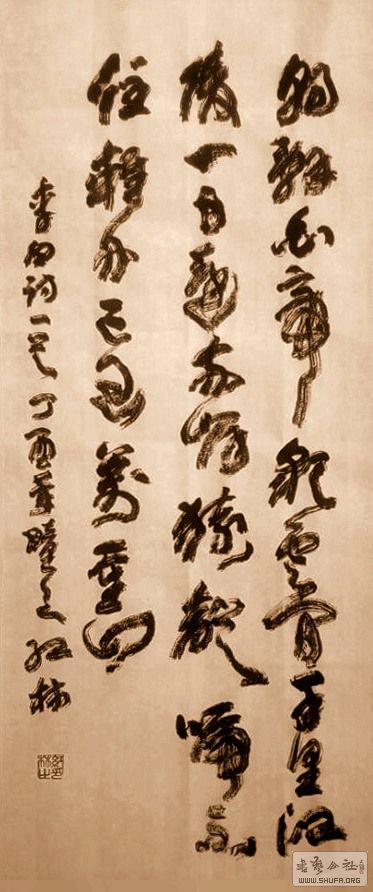 朝辭白帝彩雲間千里江
陵一日還兩岸猿聲啼不
住輕舟已過萬重山
李白詩一首丁酉年
書藝公社
WWW.SHUFA.ORG